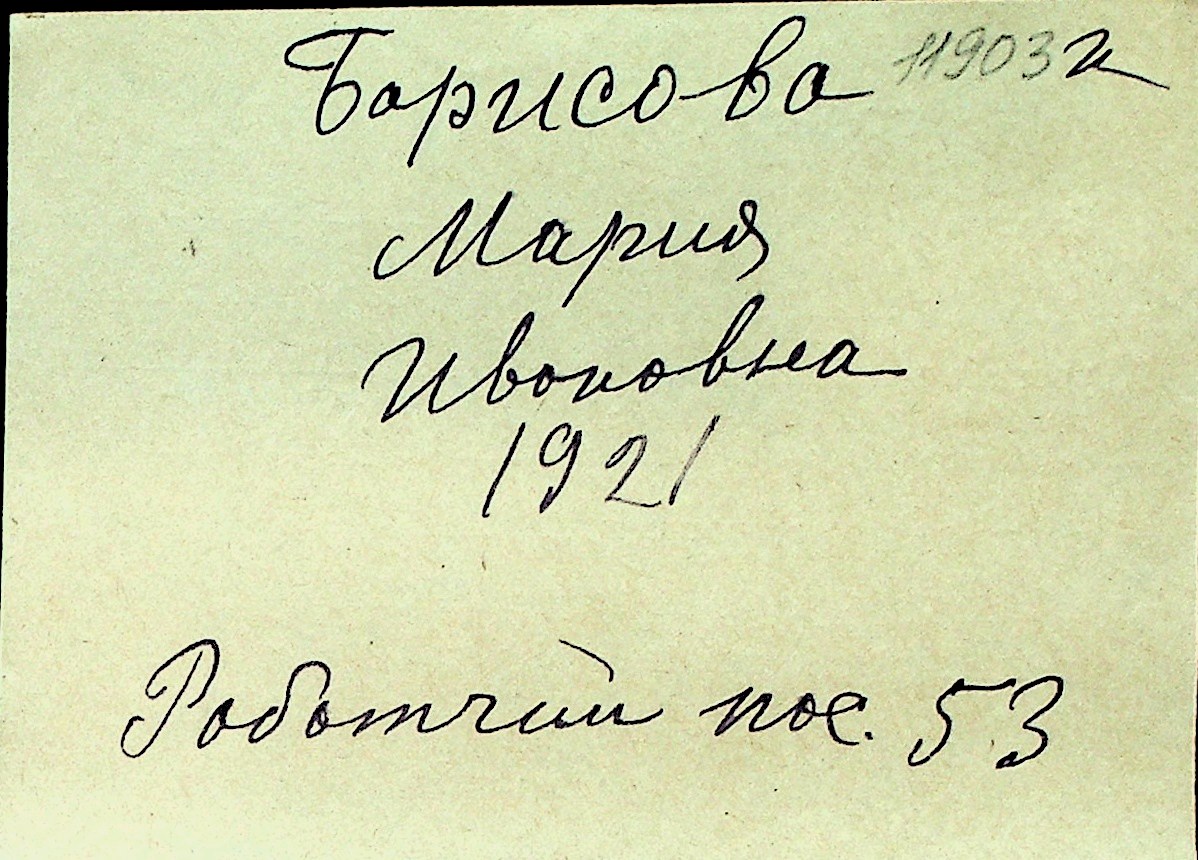 Борисова 11903 и
Мария
Ивановна
1921
Работчий пос. 53